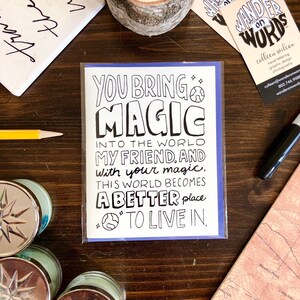 YOU BRING
MAGIC
INTO THE WORLD
MY FRIEND, AND
with your magic,
THIS WORLD BECOMES
A BETTER place
TO LIVE IN.
WANDER
on
WORDS
colleen wilcox